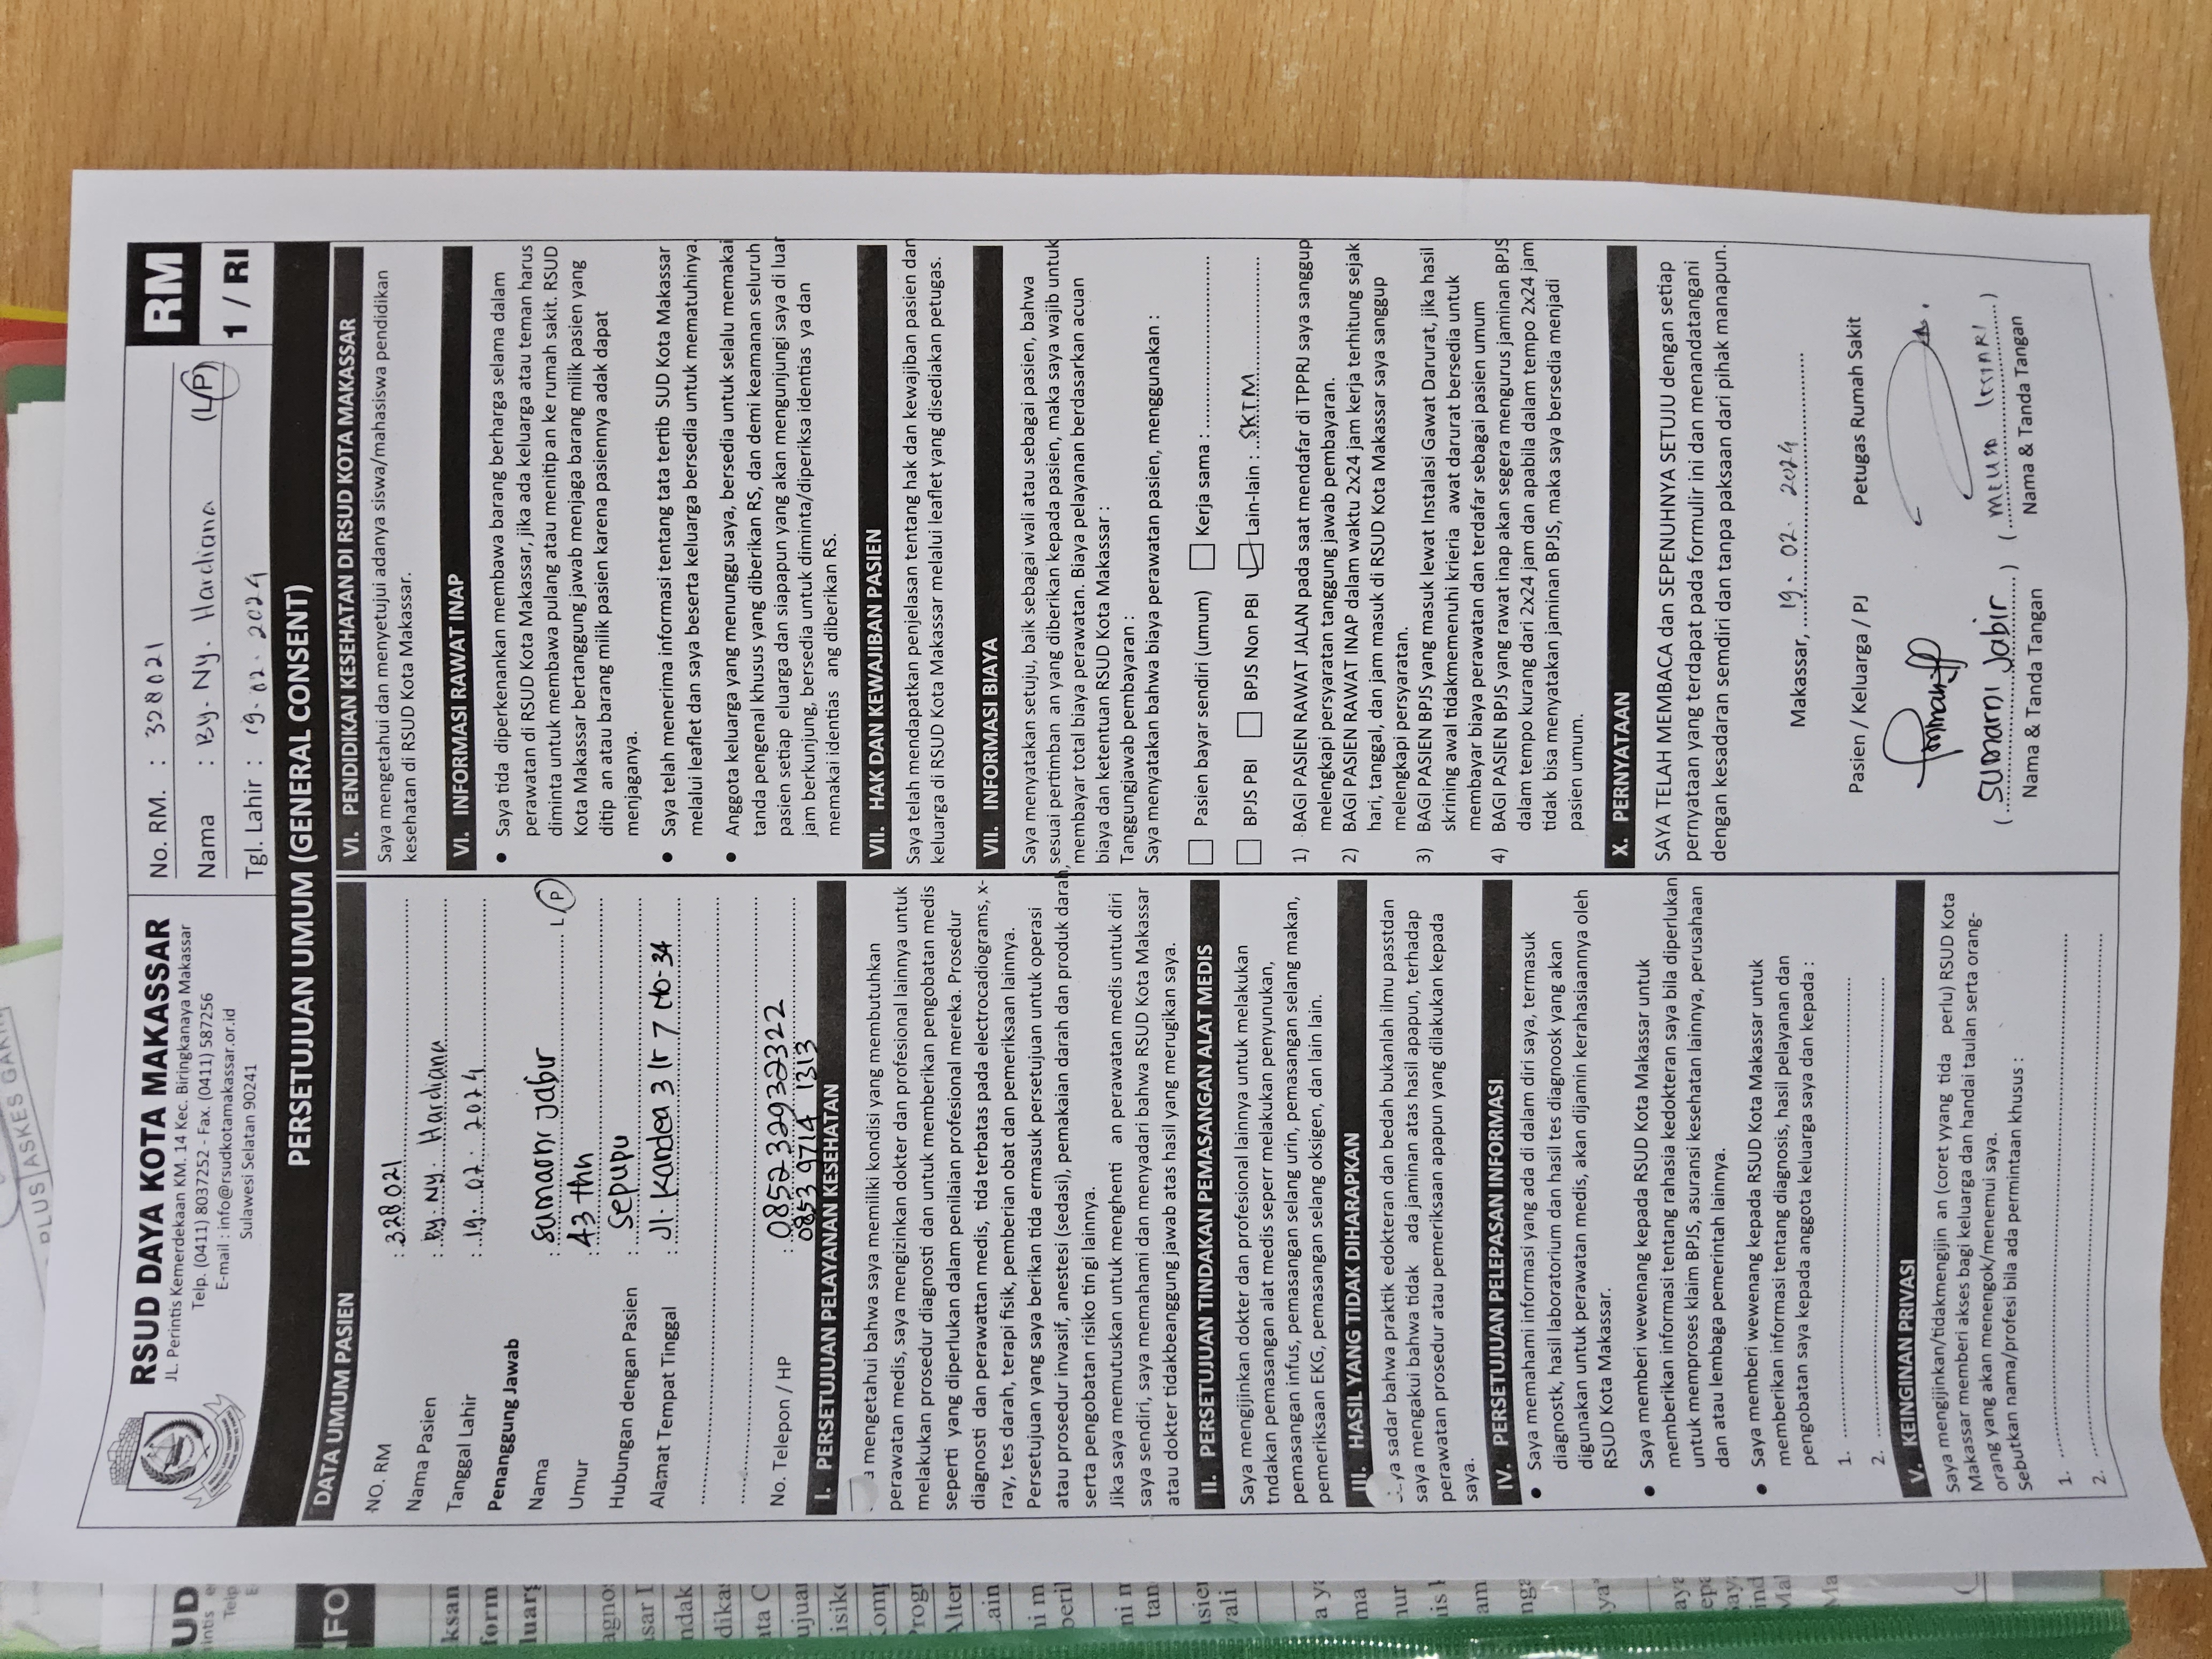 PLUS ASKES GAKIN
RSUD DAYA KOTA MAKASSAR
JL. Perintis Kemerdekaan KM. 14 Kec. Biringkanaya Makassar
Telp. (0411) 8037252 - Fax. (0411) 587256
E-mail : info@rsudkotamakassar.or.id
Sulawesi Selatan 90241
No. RM. : 328021
Nama : By. Ny. Hardiana (L/P)
Tgl. Lahir : 19. 02. 2024
RM
1 / RI
PERSETUJUAN UMUM (GENERAL CONSENT)
DATA UMUM PASIEN
NO. RM : 328021
Nama Pasien : By. Ny. Hardiana
Tanggal Lahir : 19. 02. 2024
Penanggung Jawab
Nama : Sumarni Jabir L/P
Umur : 43 thn
Hubungan dengan Pasien : Sepupu
Alamat Tempat Tinggal : Jl. Kandea 3 lr 7 No-34
No. Telepon / HP : 085232932322
0853 9714 1313
I. PERSETUJUAN PELAYANAN KESEHATAN
a mengetahui bahwa saya memiliki kondisi yang membutuhkan
perawatan medis, saya mengizinkan dokter dan profesional lainnya untuk
melakukan prosedur diagnosti dan untuk memberikan pengobatan medis
seperti yang diperlukan dalam penilaian profesional mereka. Prosedur
diagnosti dan perawattan medis, tida terbatas pada electrocadiograms, x-
ray, tes darah, terapi fisik, pemberian obat dan pemeriksaan lainnya.
Persetujuan yang saya berikan tida ermasuk persetujuan untuk operasi
atau prosedur invasif, anestesi (sedasi), pemakaian darah dan produk darah,
serta pengobatan risiko tin gi lainnya.
Jika saya memutuskan untuk menghenti an perawatan medis untuk diri
saya sendiri, saya memahami dan menyadari bahwa RSUD Kota Makassar
atau dokter tidakbeanggung jawab atas hasil yang merugikan saya.
II. PERSETUJUAN TINDAKAN PEMASANGAN ALAT MEDIS
Saya mengijinkan dokter dan profesional lainnya untuk melakukan
tndakan pemasangan alat medis seperr melakukan penyunukan,
pemasangan infus, pemasangan selang urin, pemasangan selang makan,
pemeriksaan EKG, pemasangan selang oksigen, dan lain lain.
III. HASIL YANG TIDAK DIHARAPKAN
ya sadar bahwa praktik edokteran dan bedah bukanlah ilmu passtdan
saya mengakui bahwa tidak ada jaminan atas hasil apapun, terhadap
perawatan prosedur atau pemeriksaan apapun yang dilakukan kepada
saya.
IV. PERSETUJUAN PELEPASAN INFORMASI
● Saya memahami informasi yang ada di dalam diri saya, termasuk
diagnostk, hasil laboratorium dan hasil tes diagnoosk yang akan
digunakan untuk perawatan medis, akan dijamin kerahasiaannya oleh
RSUD Kota Makassar.
● Saya memberi wewenang kepada RSUD Kota Makassar untuk
memberikan informasi tentang rahasia kedokteran saya bila diperlukan
untuk memproses klaim BPJS, asuransi kesehatan lainnya, perusahaan
dan atau lembaga pemerintah lainnya.
● Saya memberi wewenang kepada RSUD Kota Makassar untuk
memberikan informasi tentang diagnosis, hasil pelayanan dan
pengobatan saya kepada anggota keluarga saya dan kepada :
1.
2.
V. KEINGINAN PRIVASI
Saya mengijinkan/tidakmengijin an (coret yyang tida perlu) RSUD Kota
Makassar memberi akses bagi keluarga dan handai taulan serta orang-
orang yang akan menengok/menemui saya.
Sebutkan nama/profesi bila ada permintaan khusus :
1.
2.
VI. PENDIDIKAN KESEHATAN DI RSUD KOTA MAKASSAR
Saya mengetahui dan menyetujui adanya siswa/mahasiswa pendidikan
kesehatan di RSUD Kota Makassar.
VI. INFORMASI RAWAT INAP
● Saya tida diperkenankan membawa barang berharga selama dalam
perawatan di RSUD Kota Makassar, jika ada keluarga atau teman harus
diminta untuk membawa pulang atau menitip an ke rumah sakit. RSUD
Kota Makassar bertanggung jawab menjaga barang milik pasien yang
ditip an atau barang milik pasien karena pasiennya adak dapat
menjaganya.
● Saya telah menerima informasi tentang tata tertib SUD Kota Makassar
melalui leaflet dan saya beserta keluarga bersedia untuk mematuhinya.
● Anggota keluarga yang menunggu saya, bersedia untuk selalu memakai
tanda pengenal khusus yang diberikan RS, dan demi keamanan seluruh
pasien setiap eluarga dan siapapun yang akan mengunjungi saya di luar
jam berkunjung, bersedia untuk diminta/diperiksa identias ya dan
memakai identias ang diberikan RS.
VII. HAK DAN KEWAJIBAN PASIEN
Saya telah mendapatkan penjelasan tentang hak dan kewajiban pasien dan
keluarga di RSUD Kota Makassar melalui leaflet yang disediakan petugas.
VII. INFORMASI BIAYA
Saya menyatakan setuju, baik sebagai wali atau sebagai pasien, bahwa
sesuai pertimban an yang diberikan kepada pasien, maka saya wajib untuk
membayar total biaya perawatan. Biaya pelayanan berdasarkan acuan
biaya dan ketentuan RSUD Kota Makassar :
Tanggungjawab pembayaran :
Saya menyatakan bahwa biaya perawatan pasien, menggunakan :
Pasien bayar sendiri (umum) Kerja sama :
BPJS PBI BPJS Non PBI Lain-lain : SKTM
1) BAGI PASIEN RAWAT JALAN pada saat mendafar di TPPRJ saya sanggup
melengkapi persyaratan tanggung jawab pembayaran.
2) BAGI PASIEN RAWAT INAP dalam waktu 2x24 jam kerja terhitung sejak
hari, tanggal, dan jam masuk di RSUD Kota Makassar saya sanggup
melengkapi persyaratan.
3) BAGI PASIEN BPJS yang masuk lewat Instalasi Gawat Darurat, jika hasil
skrining awal tidakmemenuhi krieria awat darurat bersedia untuk
membayar biaya perawatan dan terdafar sebagai pasien umum
4) BAGI PASIEN BPJS yang rawat inap akan segera mengurus jaminan BPJS
dalam tempo kurang dari 2x24 jam dan apabila dalam tempo 2x24 jam
tidak bisa menyatakan jaminan BPJS, maka saya bersedia menjadi
pasien umum.
X. PERNYATAAN
SAYA TELAH MEMBACA dan SEPENUHNYA SETUJU dengan setiap
pernyataan yang terdapat pada formulir ini dan menandatangani
dengan kesadaran semdiri dan tanpa paksaan dari pihak manapun.
Makassar, 19. 02. 2024
Pasien / Keluarga / PJ Petugas Rumah Sakit
( Sumarni Jabir ) ( )
Nama & Tanda Tangan Nama & Tanda Tangan